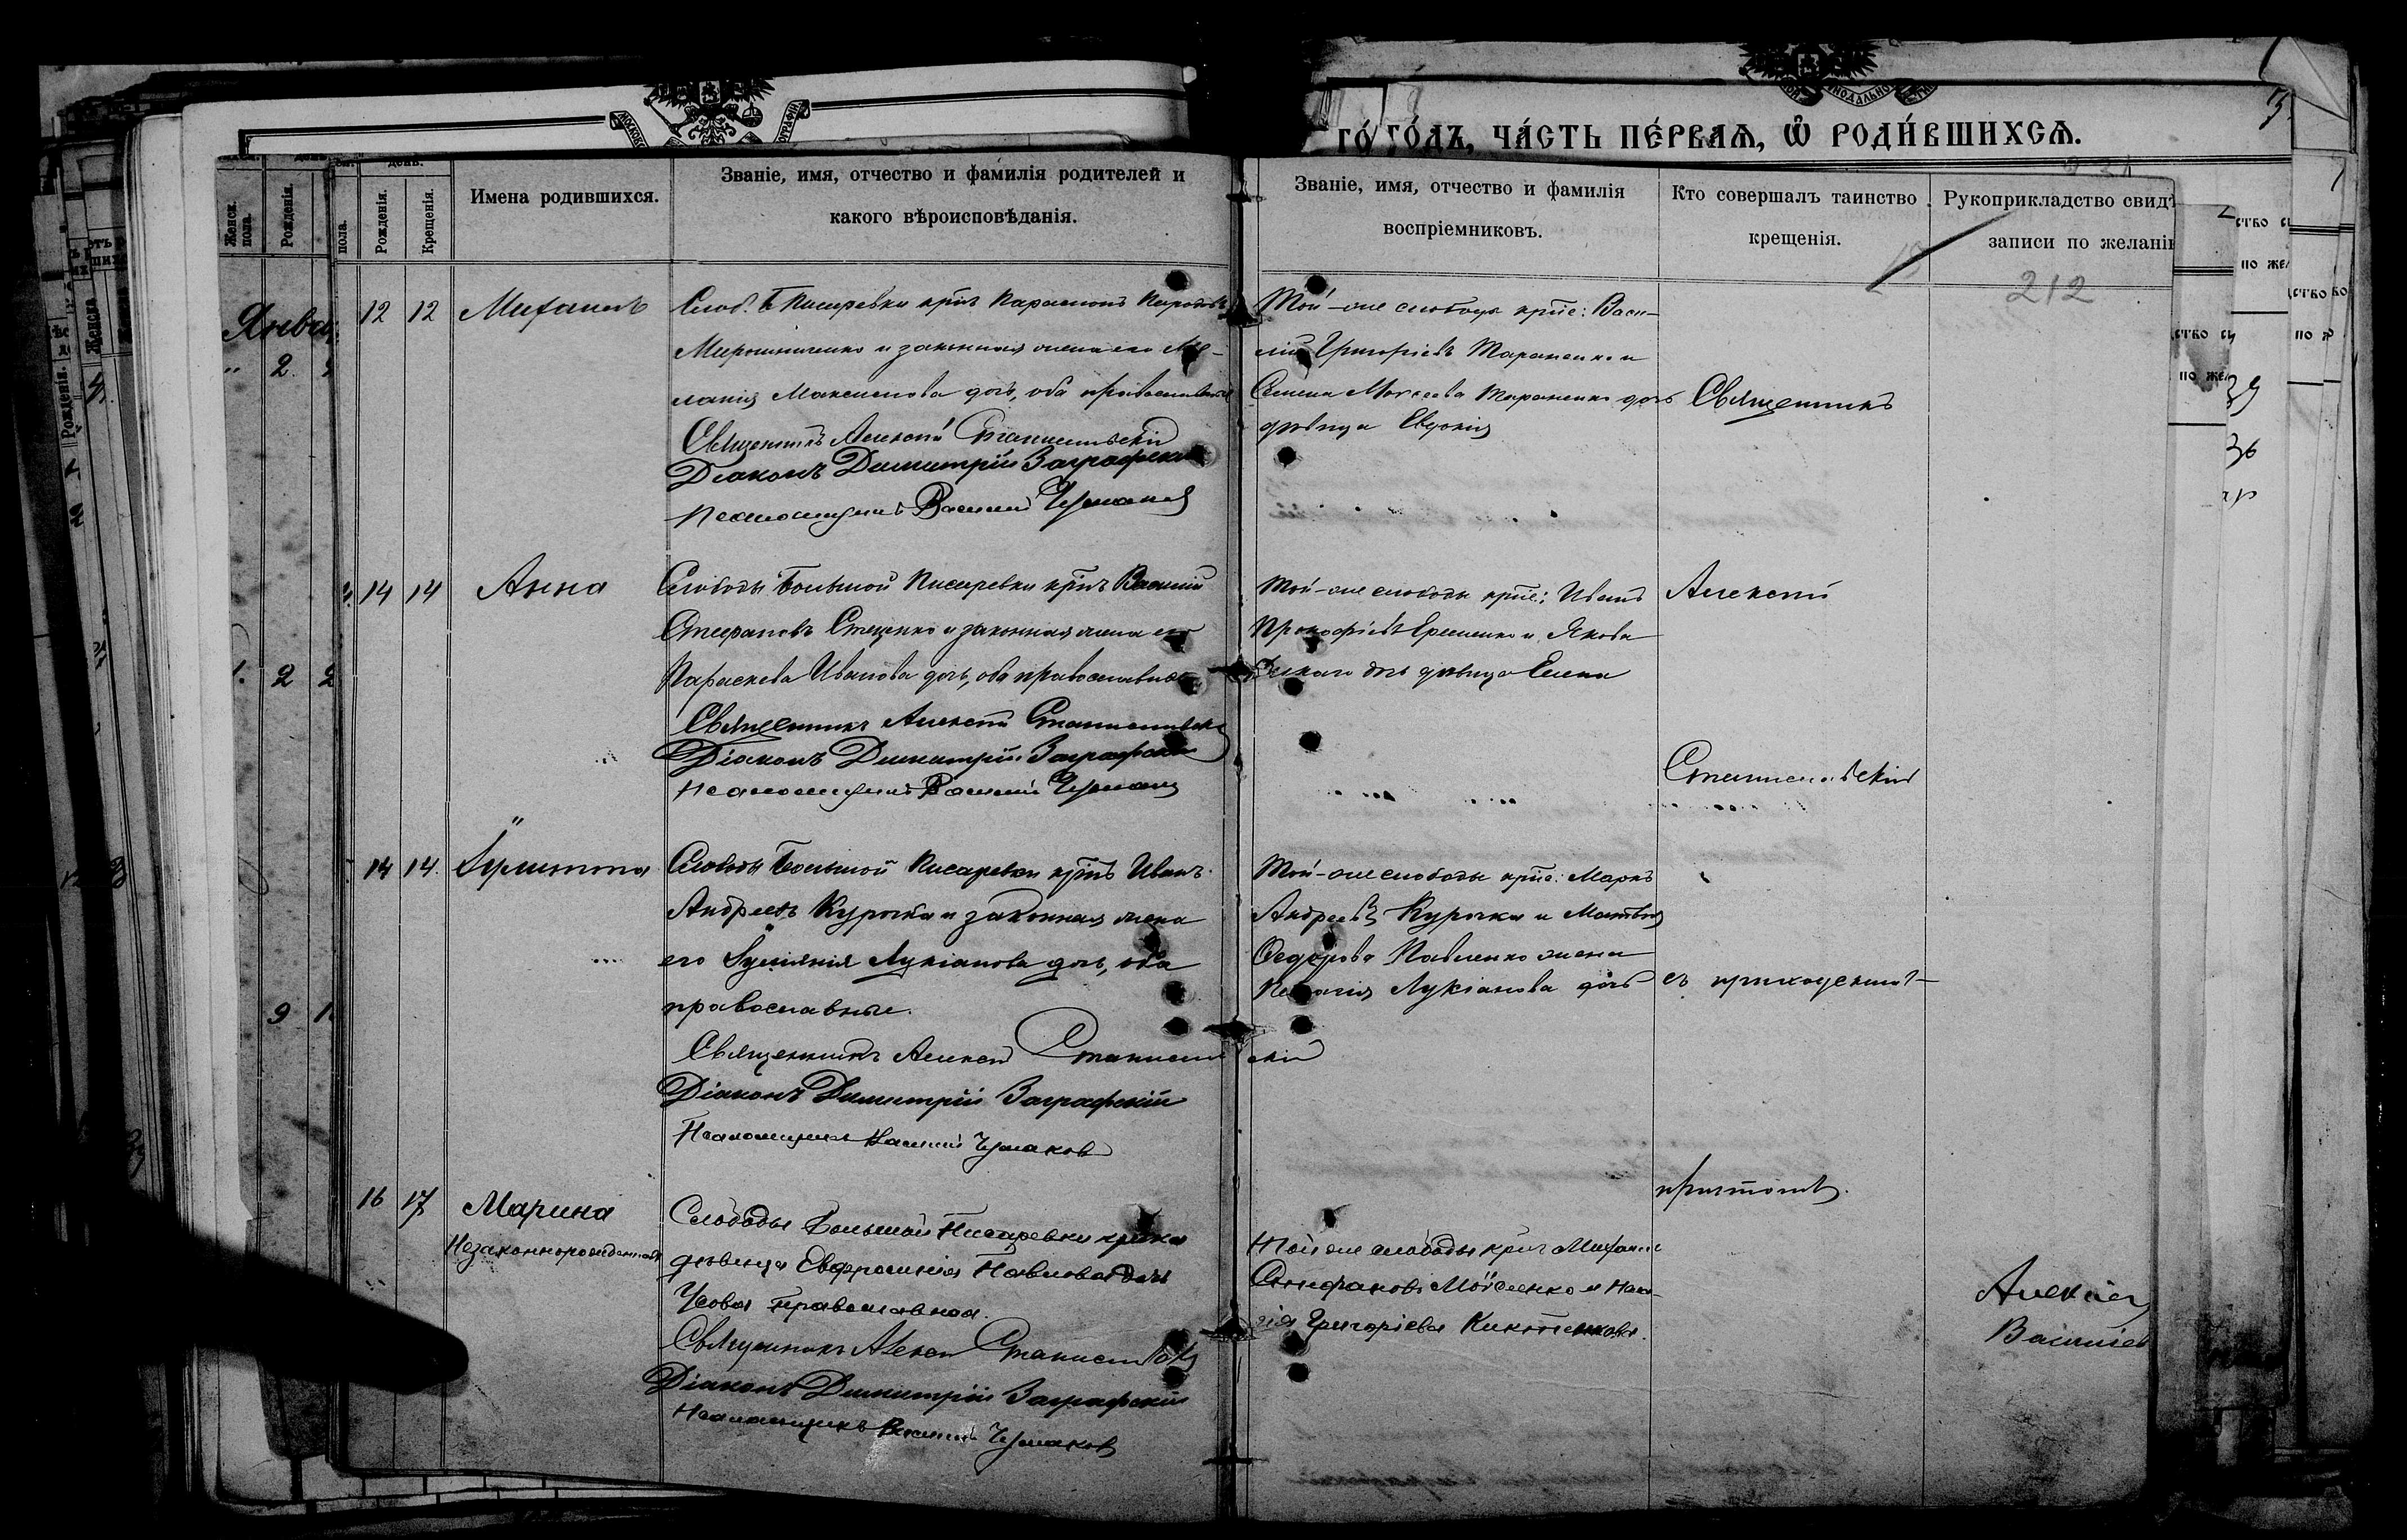 го го́дъ, ча́сть пе́рвая, ѡ҆ роди́вшихся.
Женск. пола.
Рожденія.
пола.
день.
Рожденія.
Крещенія.
Имена родившихся.
Званіе, имя, отчество и фамилія родителей и
какого вѣроисповѣданія.
Званіе, имя, отчество и фамилія
воспріемниковъ.
Кто совершалъ таинство
крещенія.
Рукоприкладство свидѣ
записи по желанію
212
12 12 Михаилъ
Слоб. Б. Писаревки крнъ Парамонъ
Мирошниченко и законная жена его Ме-
ланія Максимова дочь, оба православные
Священникъ Алексій Станиславскій
Діаконъ Димитрій Заграфскій
Псаломщикъ Василій Чумаковъ
Той-же слободы крне: Васи-
лій Григоріевъ Тараненко и
Семена Моисеева Тараненко дочь
дѣвица Евдокія
Священникъ
14 14 Анна
Слободы Большой Писаревки крнъ Василій
Стефановъ Стеценко и законная жена его
Параскева Иванова дочь, оба православные
Священникъ Алексій Станиславскій
Діаконъ Димитрій Заграфскій
Псаломщикъ Василій Чумаковъ
Той-же слободы крне: Иванъ
Прокофіевъ Еременко и Якова
дочь дѣвица Елена
Алексій
Станиславскій
14 14.
Слободы Большой Писаревки крнъ Иванъ
Андреевъ Курочка и законная жена
его Іуліанія Лукіанова дочь, оба
православные.
Священникъ Алексій Станиславскій
Діаконъ Димитрій Заграфскій
Псаломщикъ Василій Чумаковъ
Той-же слободы крне: Маркъ
Андреевъ Курочка и Матвея
Федорова Павленко жена
Пелагія Лукіанова дочь
съ
причтомъ.
16 17 Марина
Незаконнорожденная
Слободы Большой Писаревки крнка
дѣвица Евфросинія Павлова дочь
Усова православная.
Священникъ Алексій Станиславскій
Діаконъ Димитрій Заграфскій
Псаломщикъ Василій Чумаковъ
Той же слободы крнъ Михаилъ
Стефановъ Мойсеенко и
Григоріева
Алексій
Василіев
Янва
2
2 2
9 1